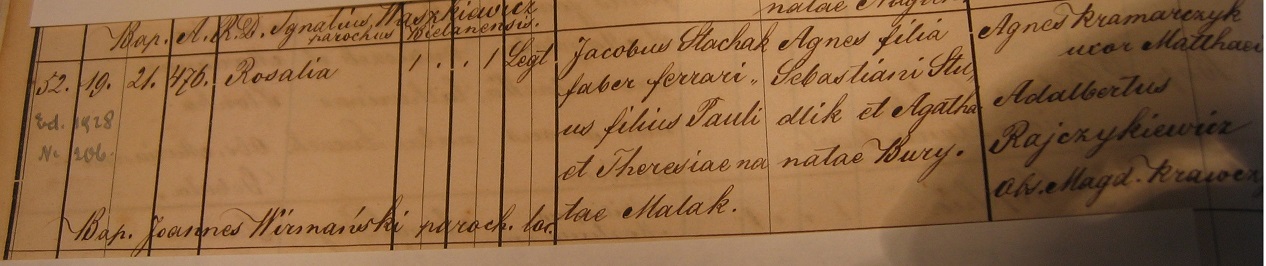 natae
Bap. A. R. D. Ignatius Waszkiewicz
parochus Bielanensis.
52. 19. 21. 476. Rosalia 1 . . 1 Legt
Ed. 1928
Nr 206.
Jacobus Stachak
faber ferrari„
us filius Pauli
et Theresiae na
tae Malak.
Agnes filia
Sebastiani Stu„
dlik et Agatha
natae Bury.
Agnes Kramarczyk
uxor Matthaei
Adalbertus
Rajczykiewicz
Obs. Magd. Krawcz
Bap. Joannes Wirmański paroch. loc.